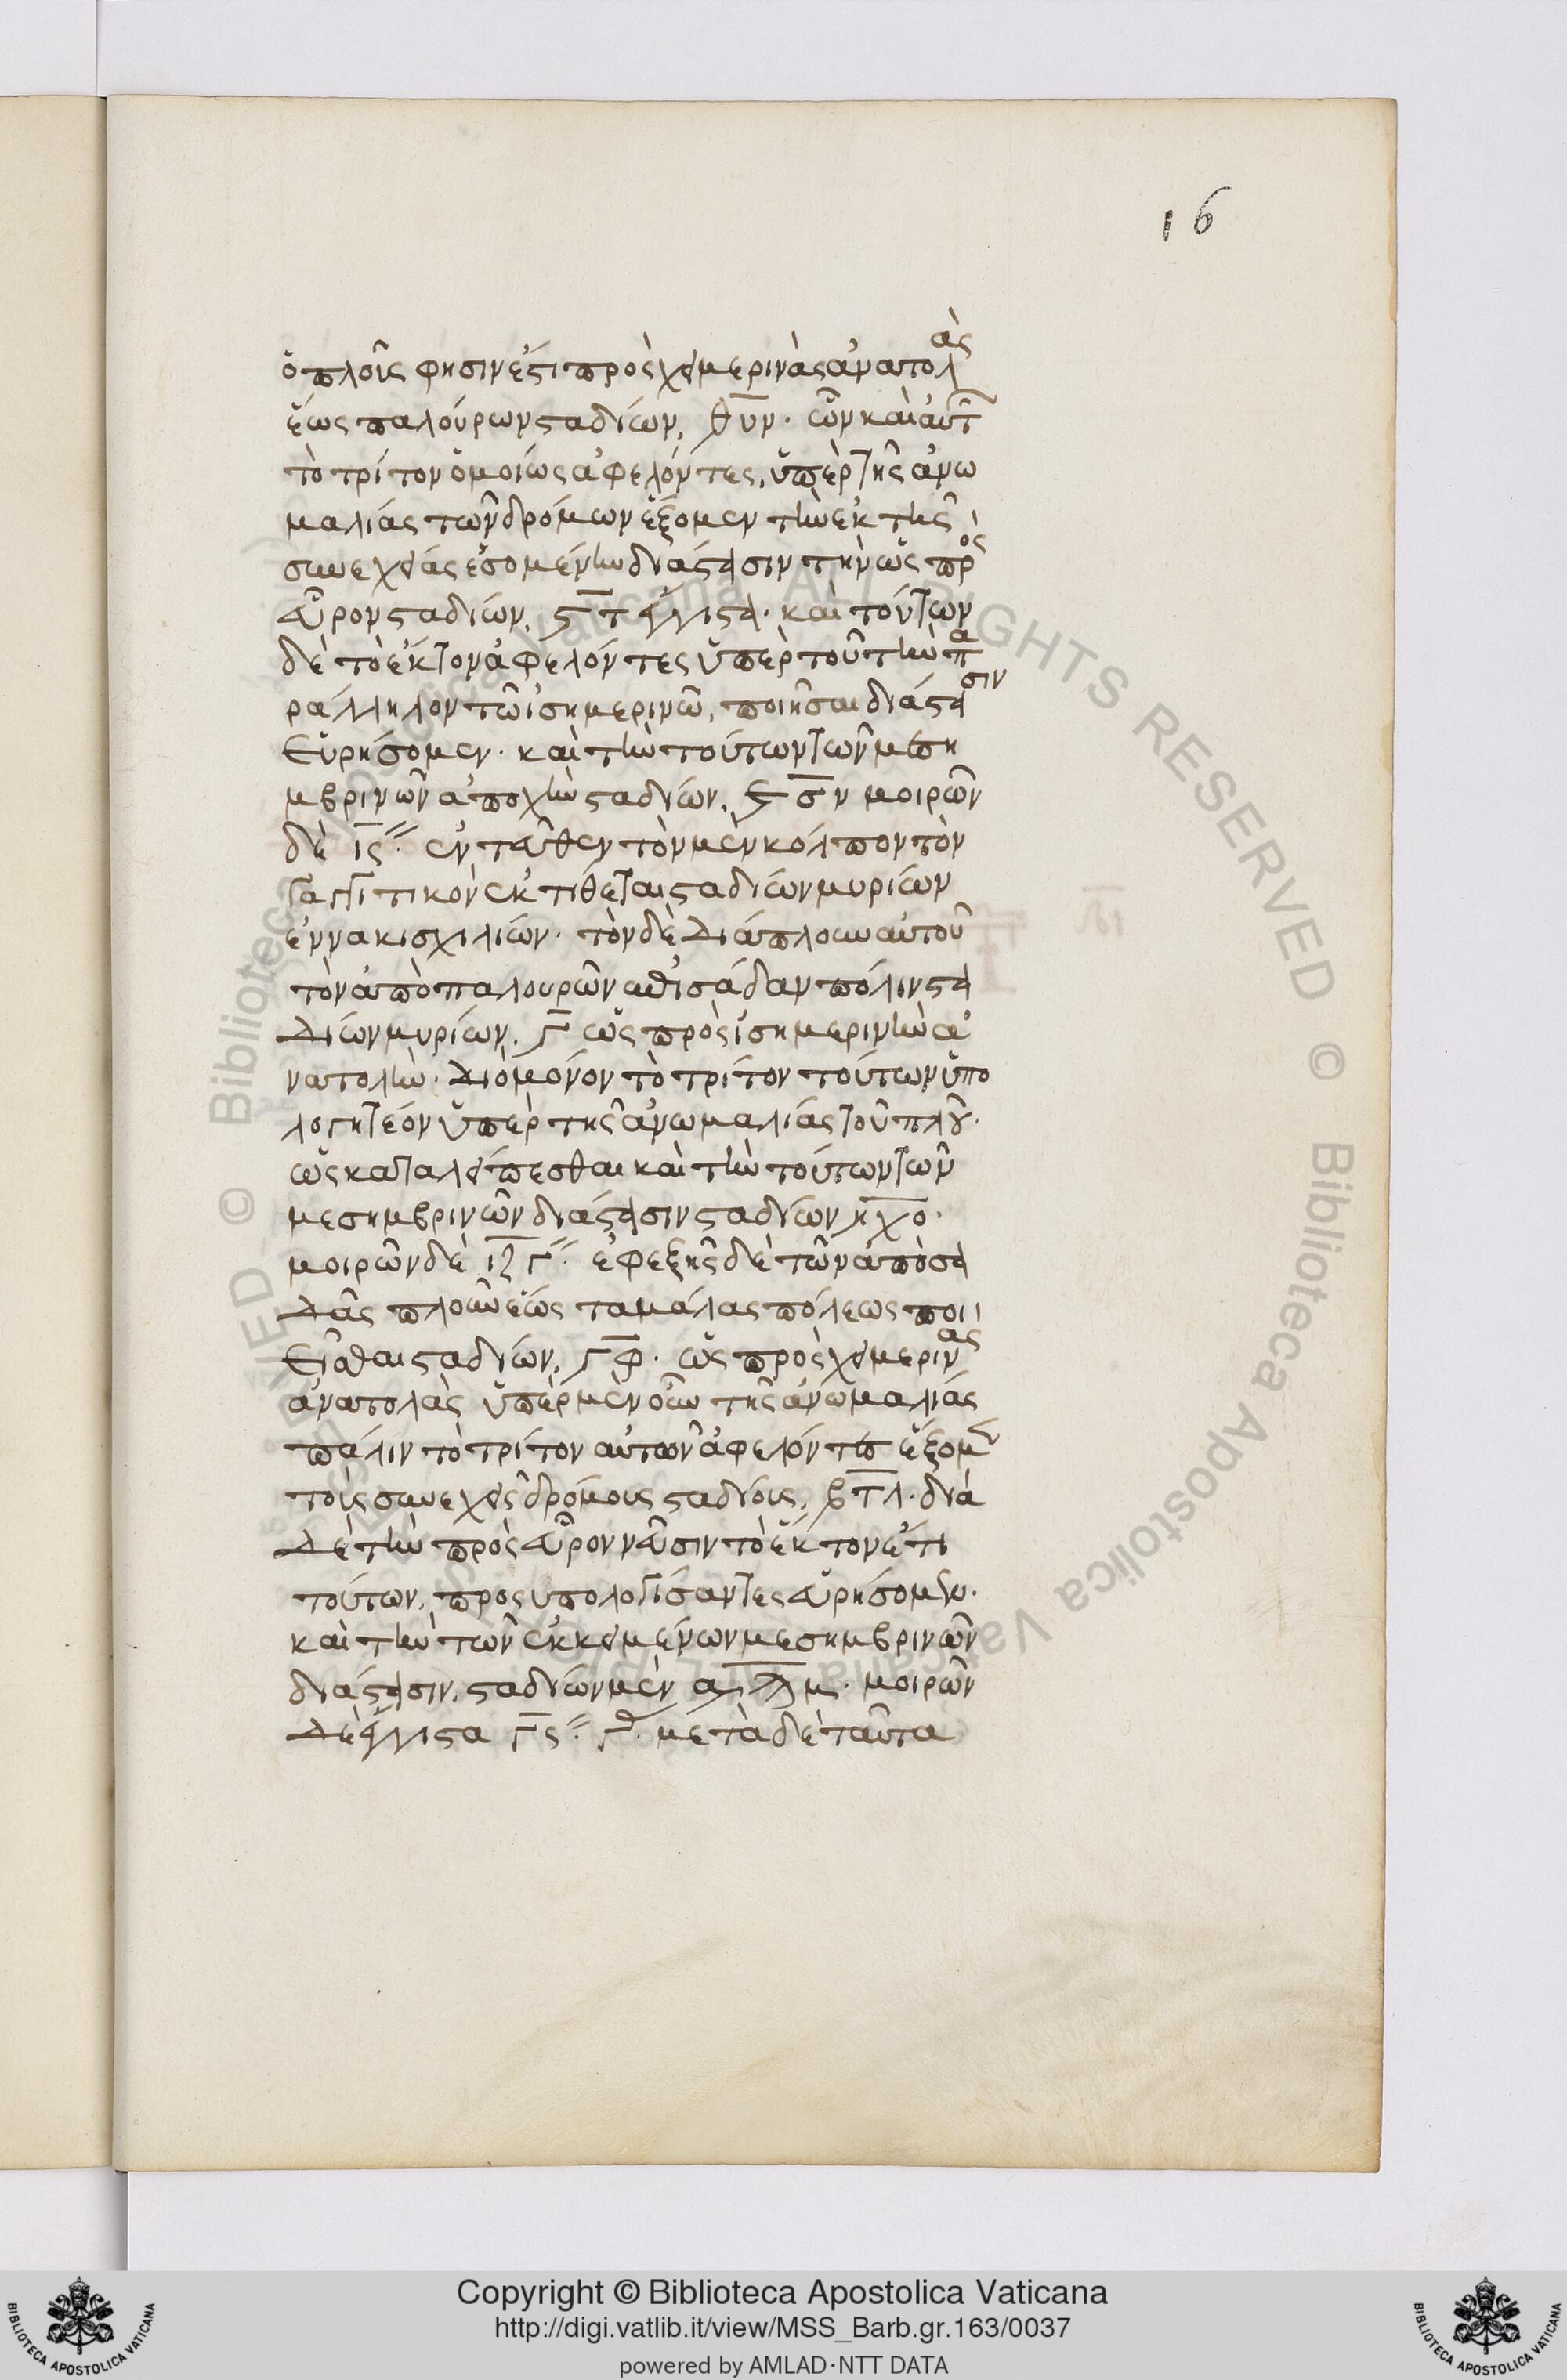 16
ὁ πλοῦς φησιν ἐστι πρὸς χειμερινὰς ἀνατολὰς
ἕως παλούρων σταδίων, θυν. ὧν καὶ αὐτ
τὸ τρίτον ὁμοίως ἀφελόντες, ὑπὲρ τῆς ἀνω
μαλίας τῶν δρόμων ἕξομεν τὴν ἐκ τῆς
συνεχείας ἐσομένην διάστασιν τὴν ὡς πρὸς
εὖρον σταδίων, ϛτ ἔγγιστα. καὶ τούτων
δὲ τὸ ἕκτον ἀφελόντες ὑπὲρ τοῦ τὴν πα
ράλληλον τῶ ἰσημερινῶ, ποιῆσαι διάστασιν
εὑρήσομεν. καὶ τὴν τούτων τῶν μεση
μβρινῶν ἀποχὴν σταδίων, ϛσν μοιρῶν
δὲ ιϛ´´. ἐντεῦθεν τὸν μὲν κόλπον τὸν
γαγγιτικὸν ἐκτίθεται σταδίων μυρίων
ἐννακισχιλίων. τὸν δὲ διάπλουν αὐτοῦ
τὸν ἀπὸ παλουρῶν ἐπὶ σάδαν πόλιν στα
δίων μυρίων. Γ ὡς πρὸς ἰσημερινὴν ἀ
νατολὴν. διὸ μόνον τὸ τρίτον τούτων ὑπο
λογητέον ὑπὲρ τῆς ἀνωμαλίας τοῦ πλοῦ.
ὡς καταλείπεσθαι καὶ τὴν τούτων τῶν
μεσημβρινῶν διάστασιν σταδίων ηχο.
μοιρῶν δὲ ιζ Γ´´. ἐφεξῆς δὲ τῶν ἀπὸ σα
δᾶς πλοῦν ἕως ταμάλας πόλεως ποι
εῖσθαι σταδίων, Γφ. ὡς πρὸς χειμερινὰς
ἀνατολὰς ὑπὲρ μὲν οὖν τῆς ἀνωμαλίας
πάλιν τὸ τρίτον αὐτῶν ἀφελόντες ἕξομεν
τοὺς συνεχεῖς δρόμους σταδίους, βτλ. διὰ
δὲ τὴν πρὸς εὖρον νεῦσιν τὸ ἕκτον ἔτι
τούτων. προσυπολογίσαντες εὑρήσομεν.
καὶ τὴν τῶν ἐκκειμένων μεσημβρινῶν
διάστασιν. σταδίων μὲν αϡμ. μοιρῶν
δὲ ἔγγιστα Γϛ´´. Γ. μετὰ δὲ ταῦτα
Copyright © Biblioteca Apostolica Vaticana
http://digi.vatlib.it/view/MSS_Barb.gr.163/0037
powered by AMLAD·NTT DATA
BIBLIOTECA APOSTOLICA VATICANA
BIBLIOTECA APOSTOLICA VATICANA